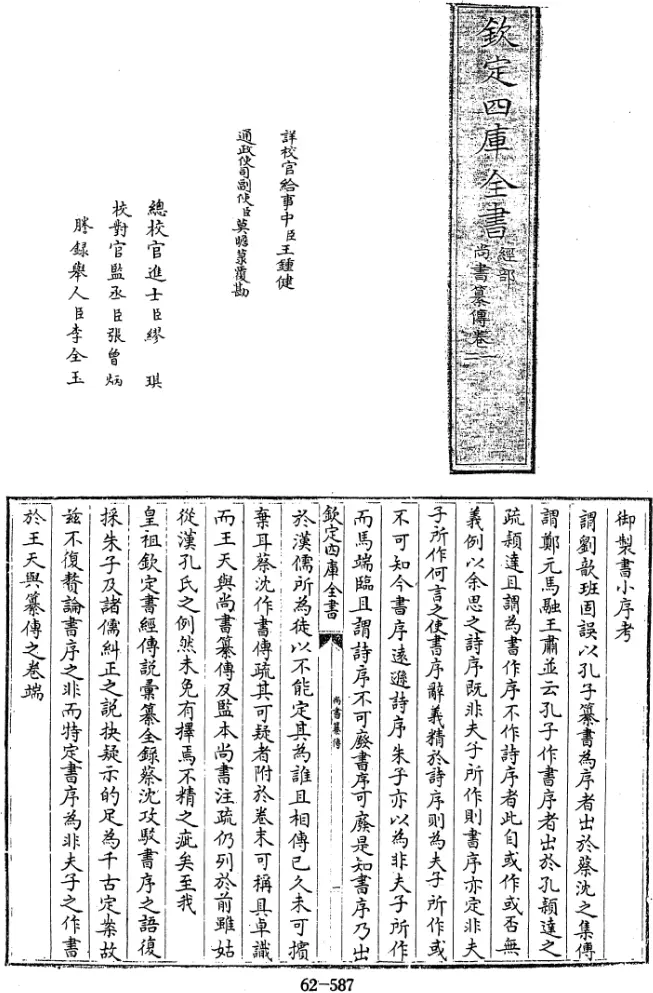 欽定四庫全書
經部
尚書纂傳卷一二
詳校官給事中臣王鍾健
通政使司副使臣莫瞻菉覆勘
總校官進士臣繆琪
校對官監丞臣張曾炳
謄錄舉人臣李全玉
御製書小序考
謂劉歆班固誤以孔子纂書為序者出於蔡沈之集傳
謂鄭元馬融王肅並云孔子作書序者出於孔穎達之
疏穎達且謂為書作序不作詩序者此自或作或否無
義例以余思之詩序既非夫子所作則書序亦定非夫
子所作何言之使書序辭義精於詩序則為夫子所作或
不可知今書序遠遜詩序朱子亦以為非夫子所作
而馬端臨且謂詩序不可廢書序可廢是知書序乃出
欽定四庫全書
尚書纂傳
一
於漢儒所為徒以不能定其為誰且相傳已久未可擯
棄耳蔡沈作書傳疏其可疑者附於卷末可稱具卓識
而王天與尚書纂傳及監本尚書注疏仍列於前雖姑
從漢孔氏之例然未免有擇焉不精之疵矣至我
皇祖欽定書經傳說彙纂全錄蔡沈攻駁書序之語復
採朱子及諸儒糾正之說抉疑示的足為千古定案故
茲不復贅論書序之非而特定書序為非夫子之作書
於王天與纂傳之卷端
62-587